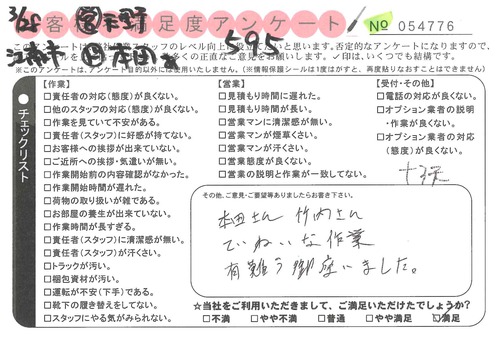 3/28 営 天野
お客様満足度アンケート
No 054776
江南市 595
このアンケートは
スタッフのレベル向上
と思います。否定的なアンケートになりますので、
多くの正直なご意見をお願いします。✓印は、いくつでも結構です。
※このアンケートは、アンケート目的以外には使用いたしません。(※情報保護シールは1度はがすと、再度貼りなおすことはできません)
チェックリスト
【作業】
□責任者の対応(態度)が良くない。
□他のスタッフの対応(態度)が良くない。
□作業を見ていて不安がある。
□責任者(スタッフ)に好感が持てない。
□お客様への挨拶が出来ていない。
□ご近所への挨拶・気遣いが無い。
□作業開始前の内容確認がなかった。
□作業開始時間が遅れた。
□荷物の取り扱いが雑である。
□お部屋の養生が出来ていない。
□作業時間が長すぎる。
□責任者(スタッフ)に清潔感が無い。
□責任者(スタッフ)が汗くさい。
□トラックが汚い。
□梱包資材が汚い。
□運転が不安(下手)である。
□靴下の履き替えをしてない。
□スタッフにやる気がみられない。
【営業】
□見積もり時間に遅れた。
□見積もり時間が長い。
□営業マンに清潔感が無い。
□営業マンが煙草くさい。
□営業マンが汗くさい。
□営業態度が良くない。
□営業の説明と作業が一致してない。
【受付・その他】
□電話の対応が良くない。
□オプション業者の説明
・作業が良くない。
□オプション業者の対応
(態度)が良くない。
その他、ご意見・ご要望等ありましたらお書き下さい。
本田さん 竹内さん
ていねいな作業
有難う御座いました。
☆当社をご利用いただきまして、ご満足いただけたでしょうか?
□不満 □やや不満 □普通 □やや満足 ☑満足